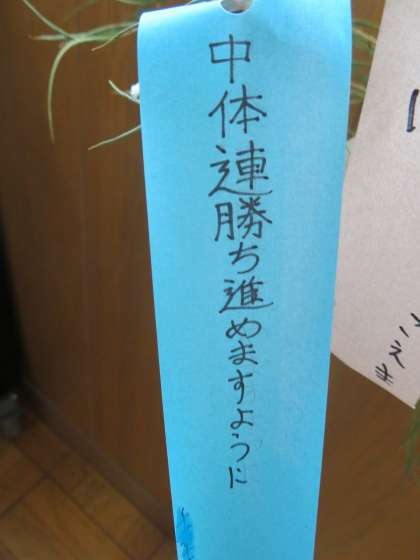 中体連勝ち進めますように